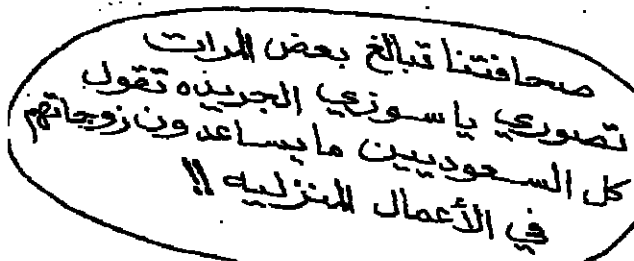 صحافتنا تبالغ بعض المرات
تصوري ياسوزي الجريده تقول
كل السعوديين مايساعدون زوجاتهم
في الأعمال المنزليه !!